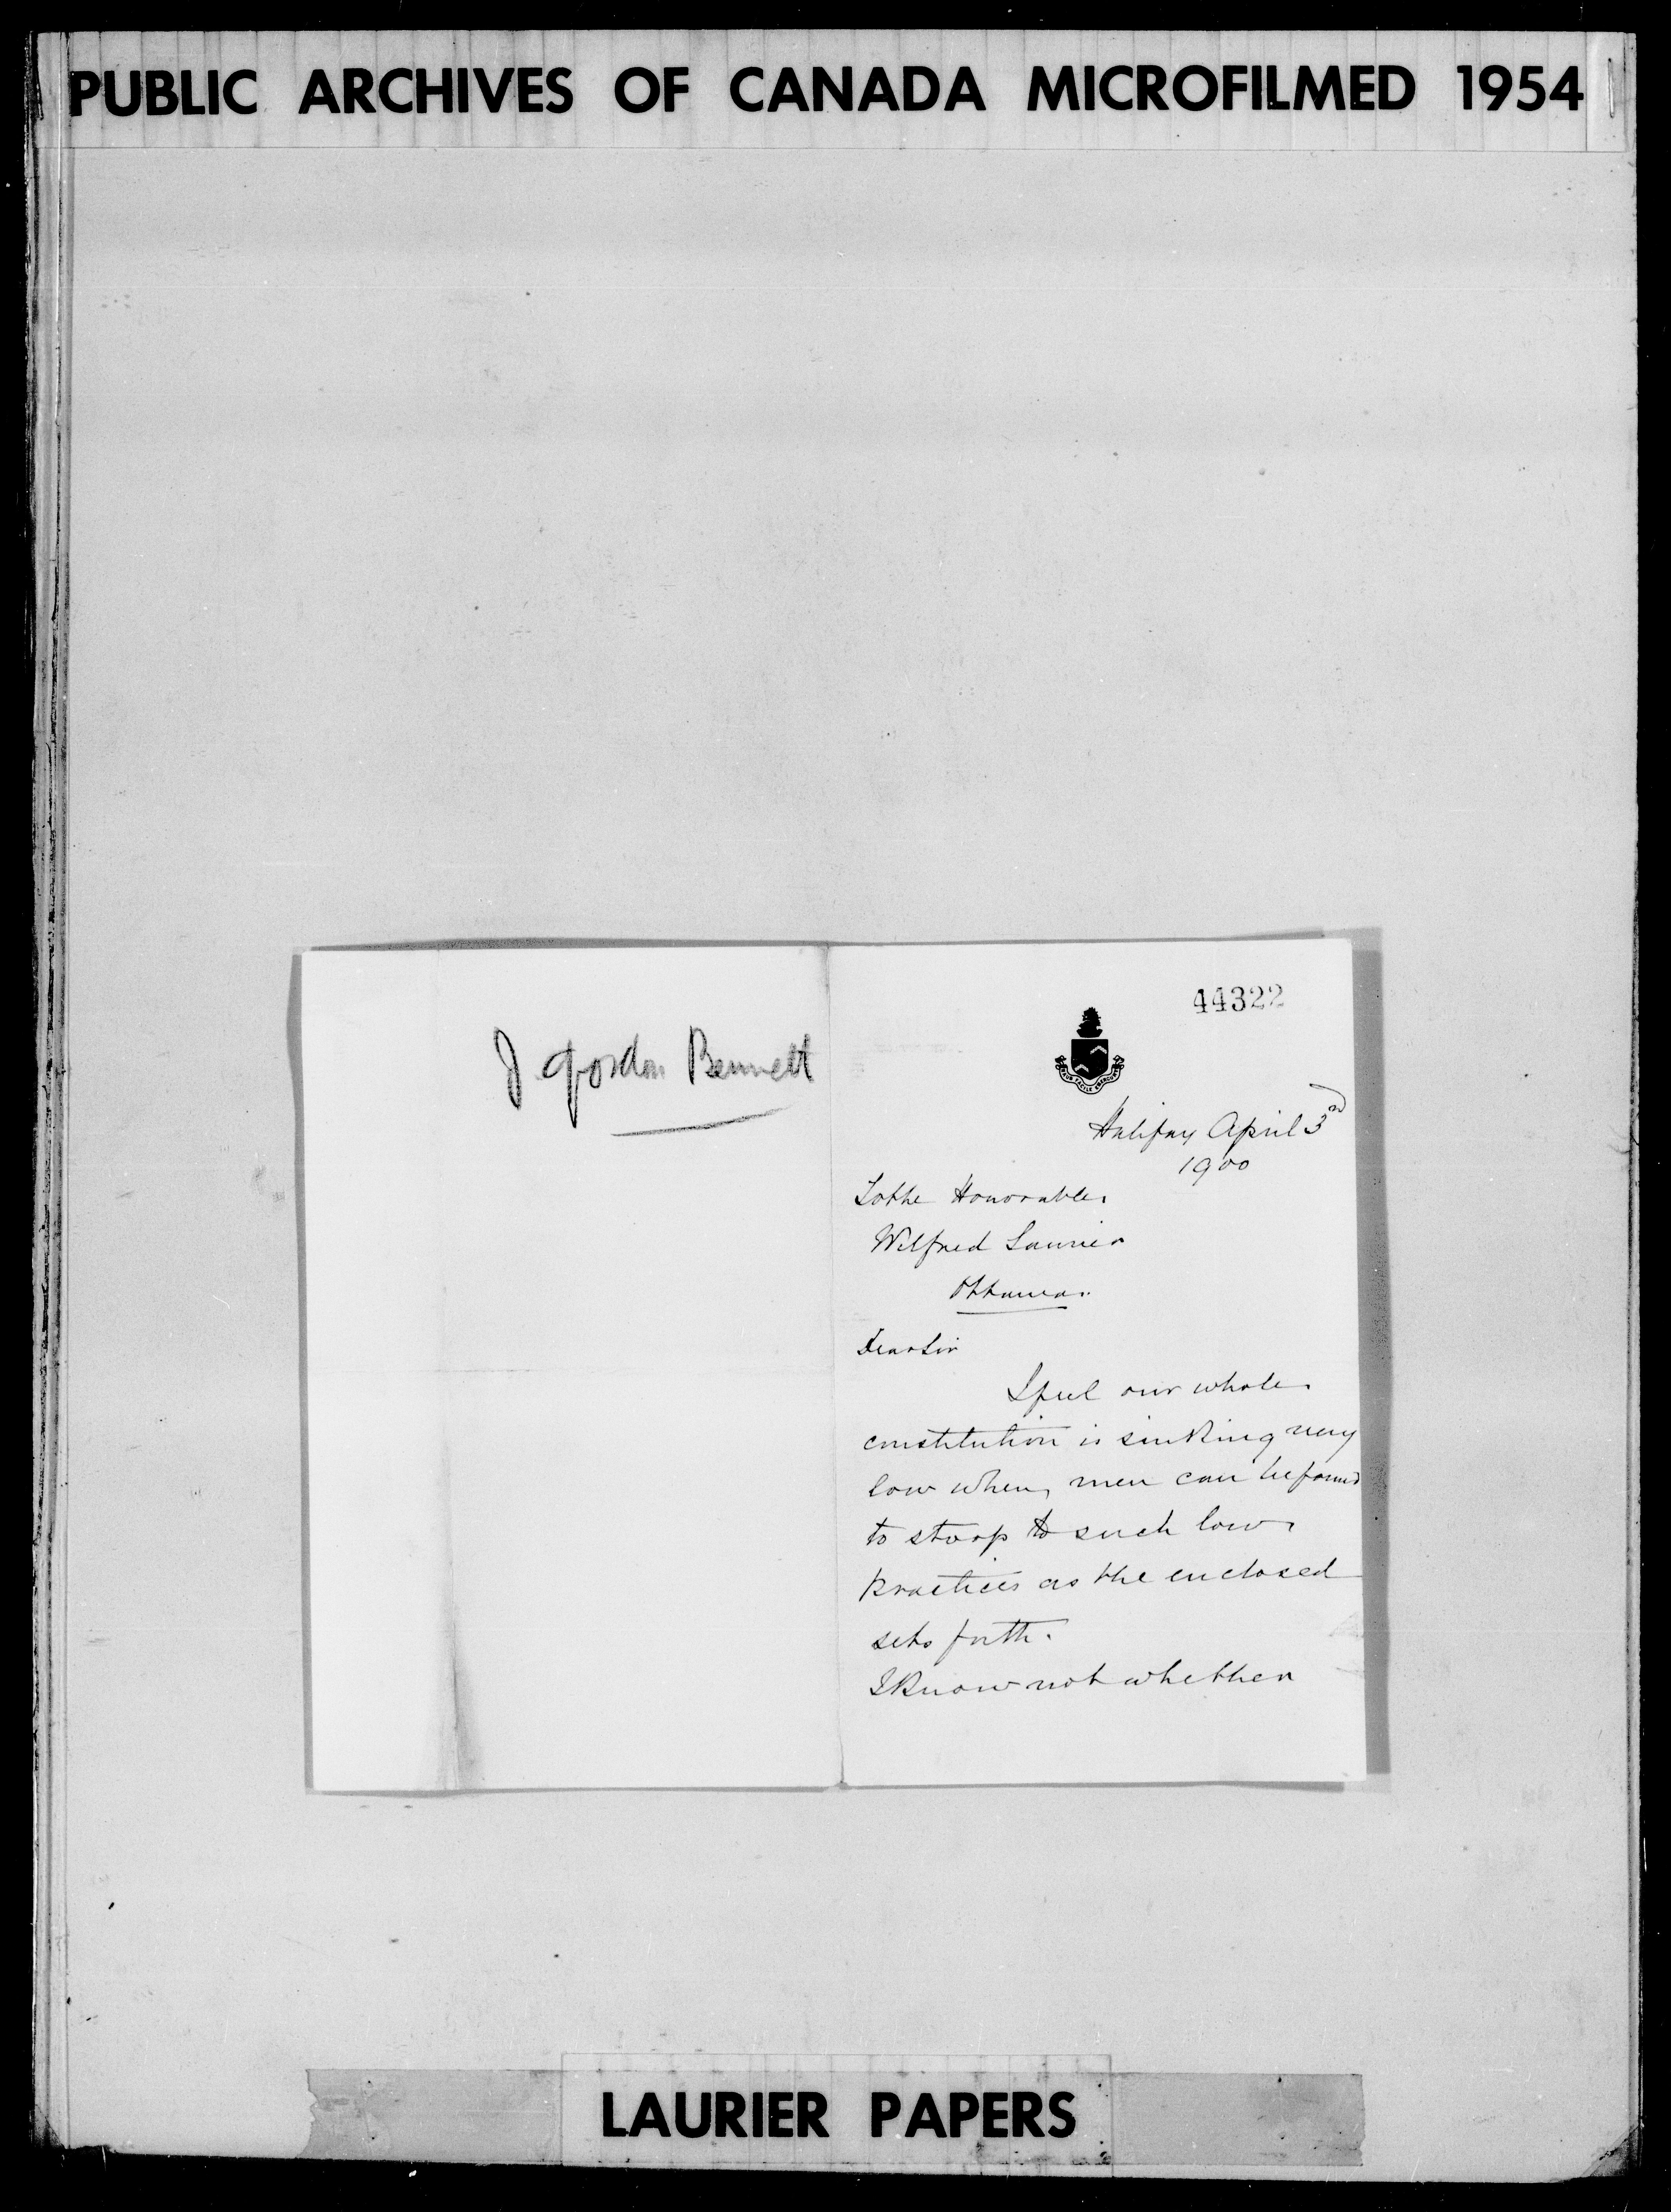 PUBLIC ARCHIVES OF CANADA MICROFILMED 1954
J Gordon Bennett
44322
Halifax April 3rd
1900
To the Honorable
Wilfred Laurier
Ottawa.
Dear Sir
I feel our whole
constitution is sinking very
low when men can be found
to stoop to such low
practices as the enclosed
sets forth.
I know not whether
LAURIER PAPERS